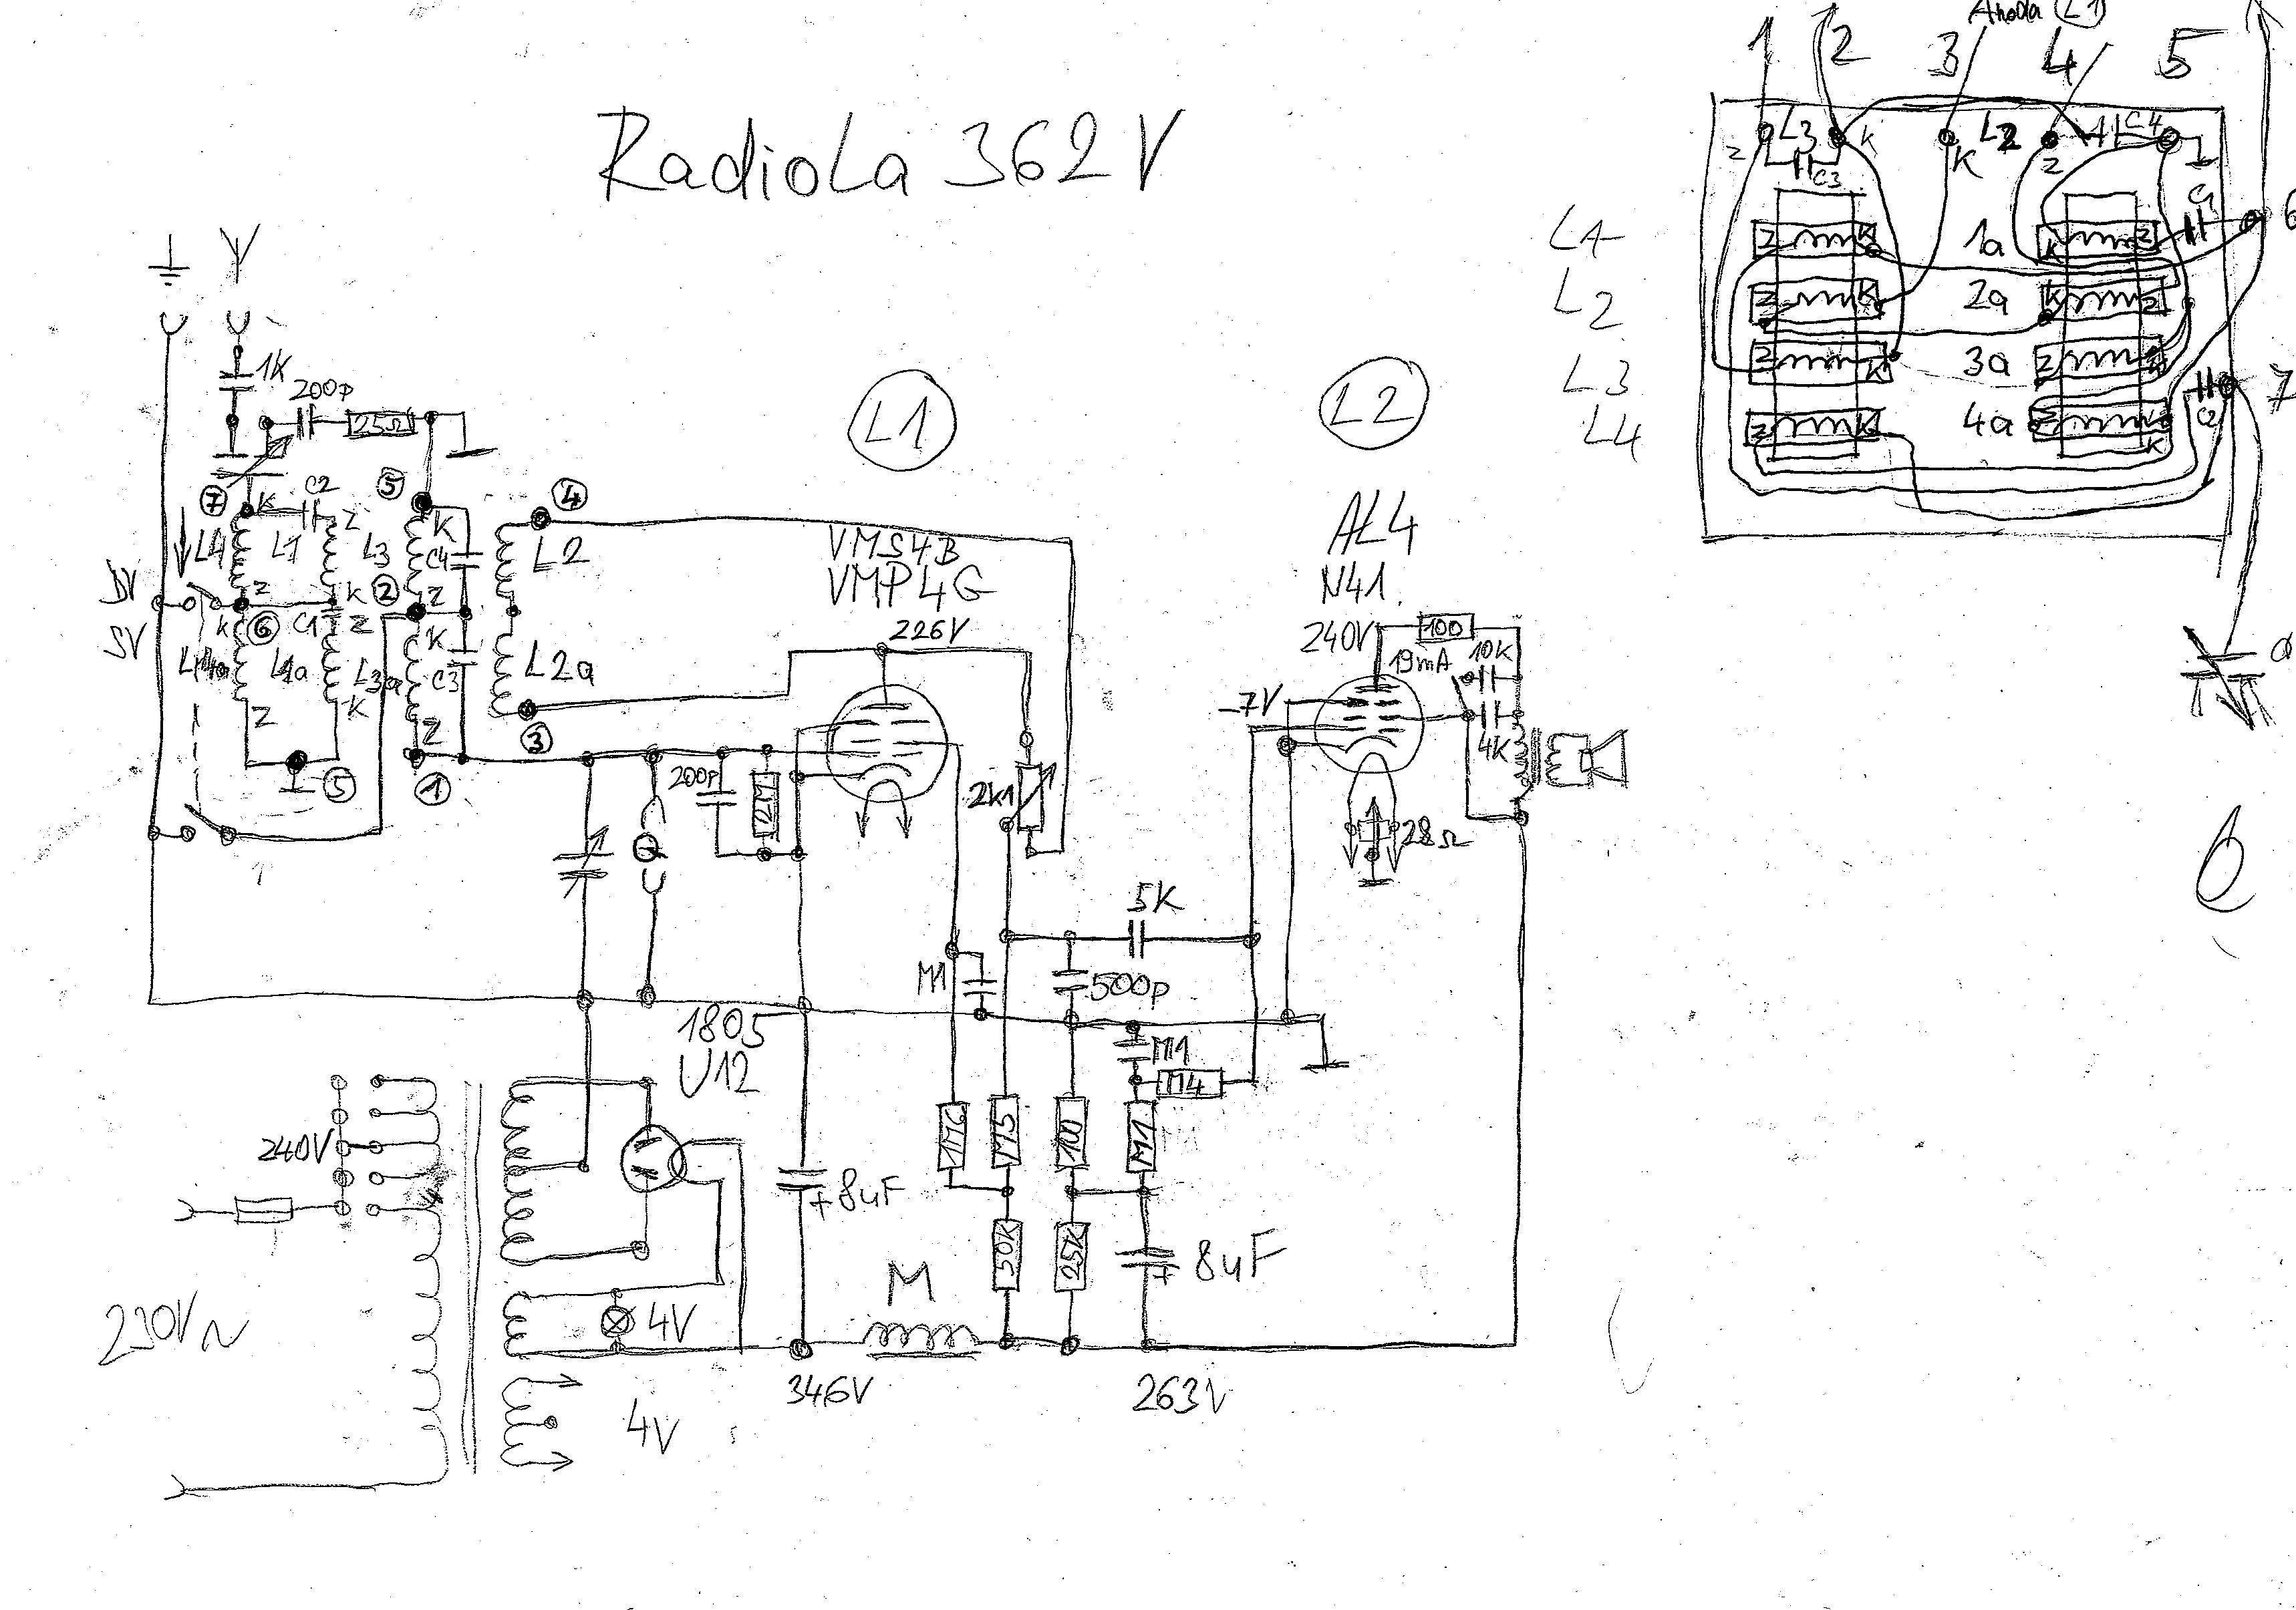 RadioLa 362V
Anoda L1
1 2 3 4 5
Z L3 K K L2 Z C4
C3
C1
6
L1 Z K 1a K Z
L2 Z K 2a K Z
L3 Z K 3a Z K
L4 Z K 4a Z K
C2
7
1K
200p
25Ω
L1
L2
7 K C2 Z 5 K 4
L4 L1 L3 C4 L2
DV
Z K 2 Z
SV
K 6 C1 Z K
L4a L1a L3a C3 L2a
Z K Z
5 1 3
VMS4B
VMP4G
226V
AL4
N41.
240V
100
19mA
10K
-7V
4K
28Ω
200p
2M
2K1
5K
M1
500p
M1
M4
1805
U12
240V
1M6
M5
100
M1
8uF
+
50K
25K
8uF
+
M
4V
230V~
346V
263V
4V